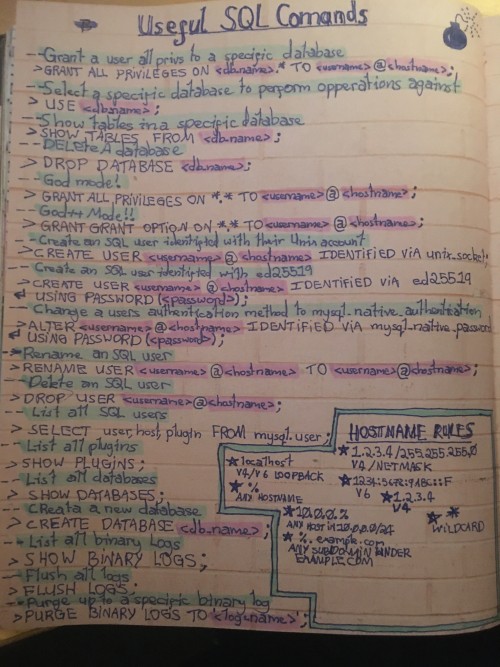 Useful SQL Comands
-- Grant a user all privs to a specific database
> GRANT ALL PRIVILEGES ON <db.name>.* TO <username>@<hostname>;
-- Select a specific database to perform opperations against
> USE <db.name>;
-- Show tables in a specific database
> SHOW TABLES FROM <db.name>;
-- DELETE A database
> DROP DATABASE <db.name>;
-- God mode!!
> GRANT ALL PRIVILEGES ON *.* TO <username>@<hostname>;
-- God++ Mode!!
> GRANT GRANT OPTION ON *.* TO <username>@<hostname>;
-- Create an SQL user identified with their Unix account
> CREATE USER <username>@<hostname> IDENTIFIED VIA unix_socket;
-- Create an SQL user identified with ed25519
> CREATE USER <username>@<hostname> IDENTIFIED VIA ed25519
USING PASSWORD(<password>);
-- Change a users authentification method to mysql_native_authentication
> ALTER <username>@<hostname> IDENTIFIED VIA mysql_native_password
USING PASSWORD(<password>);
-- Rename an SQL user
> RENAME USER <username>@<hostname> TO <username>@<hostname>;
-- Delete an SQL user
> DROP USER <username>@<hostname>;
-- List all SQL users
> SELECT user, host, plugin FROM mysql.user;
-- List all plugins
> SHOW PLUGINS;
-- List all databases
> SHOW DATABASES;
-- Create a new database
> CREATE DATABASE <db_name>;
-- List all binary Logs
> SHOW BINARY LOGS;
-- Flush all logs
> FLUSH LOGS;
-- Purge up to a specific binary log
> PURGE BINARY LOGS TO '<logname>';
HOSTNAME RULES
★ localhost
V4/V6 LOOPBACK
★ %
ANY HOSTNAME
★ 10.0.0.%
ANY HOST IN 10.0.0.0/24
★ %.example.com
ANY SUBDOMAIN UNDER
EXAMPLE.COM
★ 1.2.3.4/255.255.255.0
V4/NETMASK
V6
★ 1.2.3.4
V4
★ *
WILDCARD